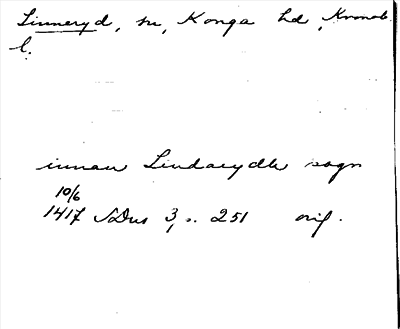 Linneryd, sn, Konga hd, Kronob.
l.
innan Lindarydh sogn
10/6
1417 SDns 3, s. 251 orig.